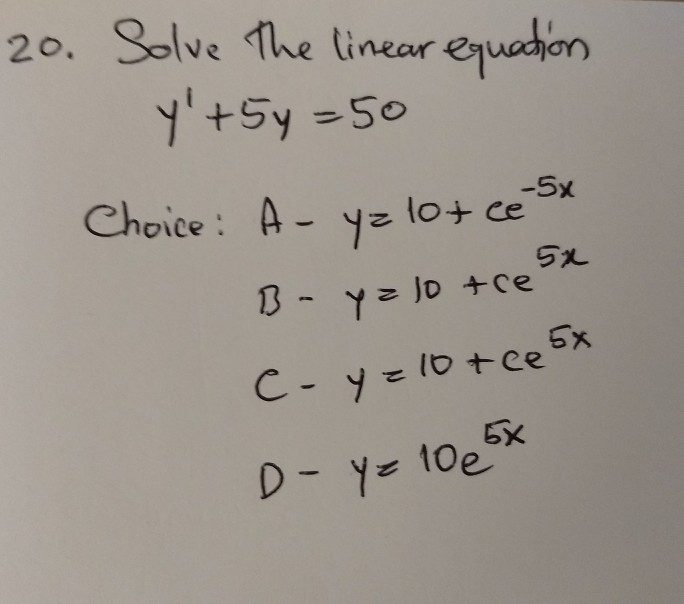 20. Solve the linear equation
y' + 5y = 50
Choice: A - y = 10 + ce^-5x
B - y = 10 + ce^5x
C - y = 10 + ce^5x
D - y = 10e^5x